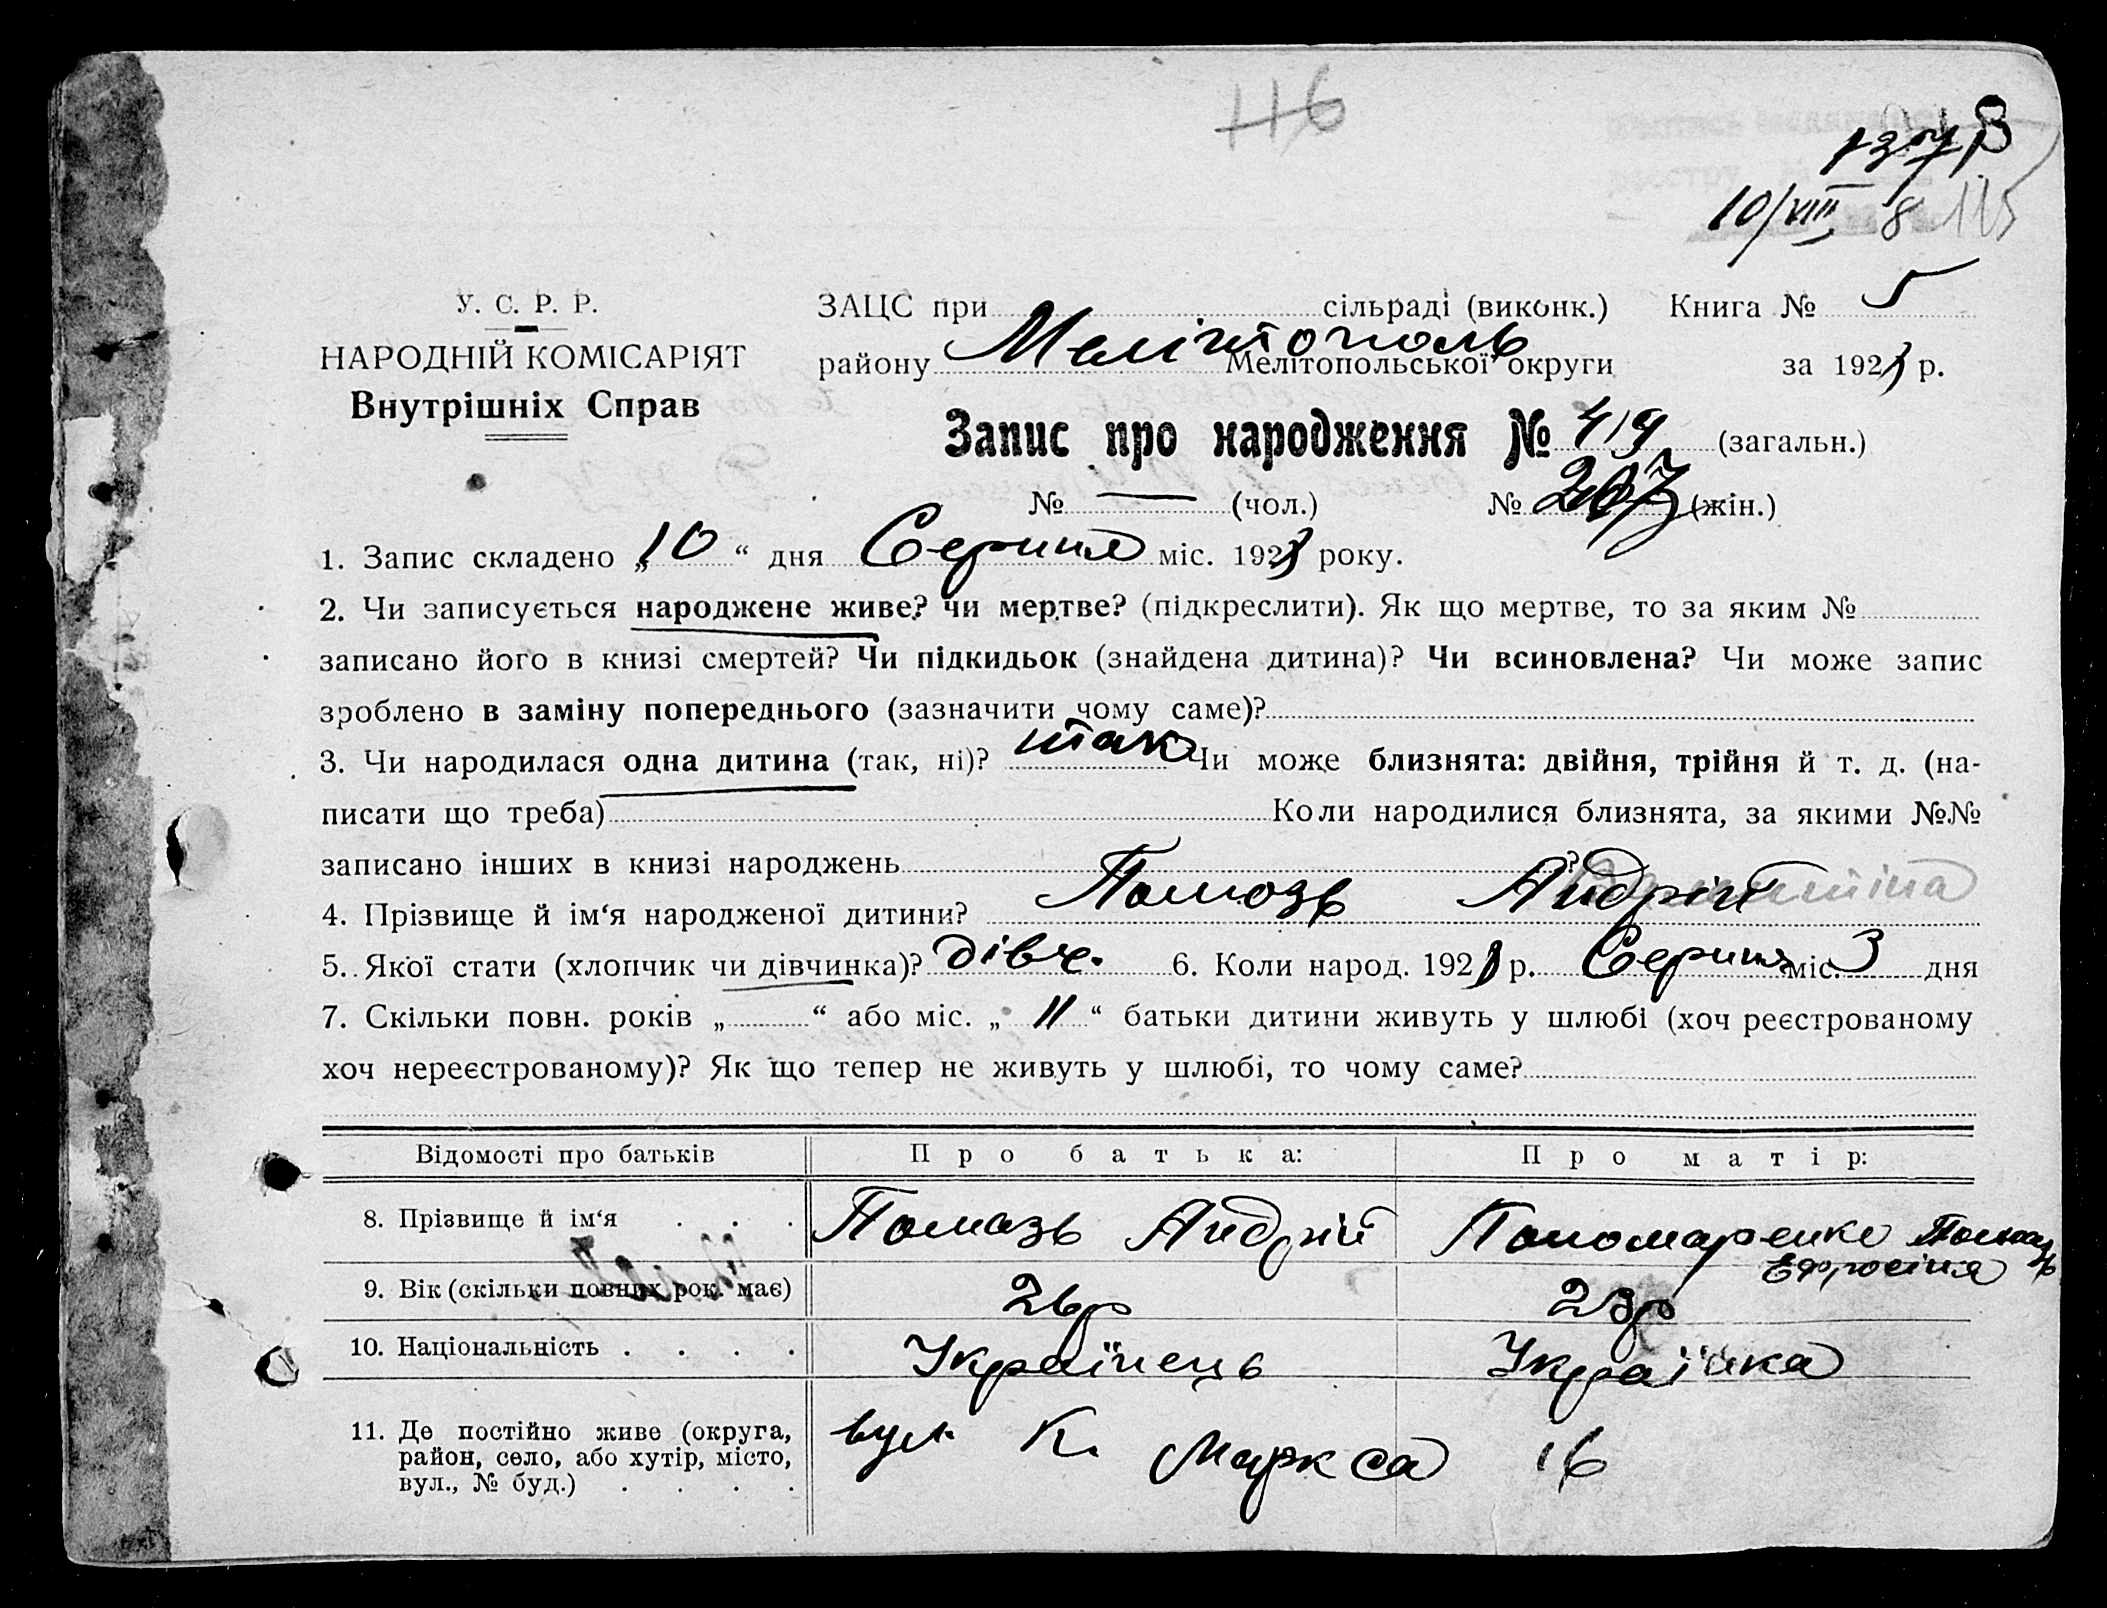 116
1371
10/VIII 8 115
У. С. Р. Р.
НАРОДНІЙ КОМІСАРІЯТ
Внутрішніх Справ
ЗАЦС при сільраді (виконк.) Книга № 5
району Мелітополь Мелітопольської округи за 1928 р.
Запис про народження № 419 (загальн.)
№ — (чол.) № 207 (жін.)
1. Запис складено „10“ дня Серпня міс. 1928 року.
2. Чи записується народжене живе? чи мертве? (підкреслити). Як що мертве, то за яким №
записано його в книзі смертей? Чи підкидьок (знайдена дитина)? Чи всиновлена? Чи може запис
зроблено в заміну попереднього (зазначити чому саме)?
3. Чи народилася одна дитина (так, ні)? так Чи може близнята: двійня, трійня й т. д. (на-
писати що треба) Коли народилися близнята, за якими №№
записано інших в книзі народжень ?
4. Прізвище й ім‘я народженої дитини? Помозь Андрій
5. Якої стати (хлопчик чи дівчинка)? дівч. 6. Коли народ. 1928 р. Серпня міс. 3 дня
7. Скільки повн. років „ “ або міс. „ 11 “ батьки дитини живуть у шлюбі (хоч реєстрованому
хоч нереєстрованому)? Як що тепер не живуть у шлюбі, то чому саме?
Відомості про батьків Про батька: Про матір:
8. Прізвище й ім‘я . . . Помазь Андрій Пономаренко Помазь
Ефросіния
9. Вік (скільки повних рок. має) 26р 23р
10. Національність . . . . Українець Українка
11. Де постійно живе (округа,
район, село, або хутір, місто,
вул., № буд.) . . . . вул. К. Маркса 16